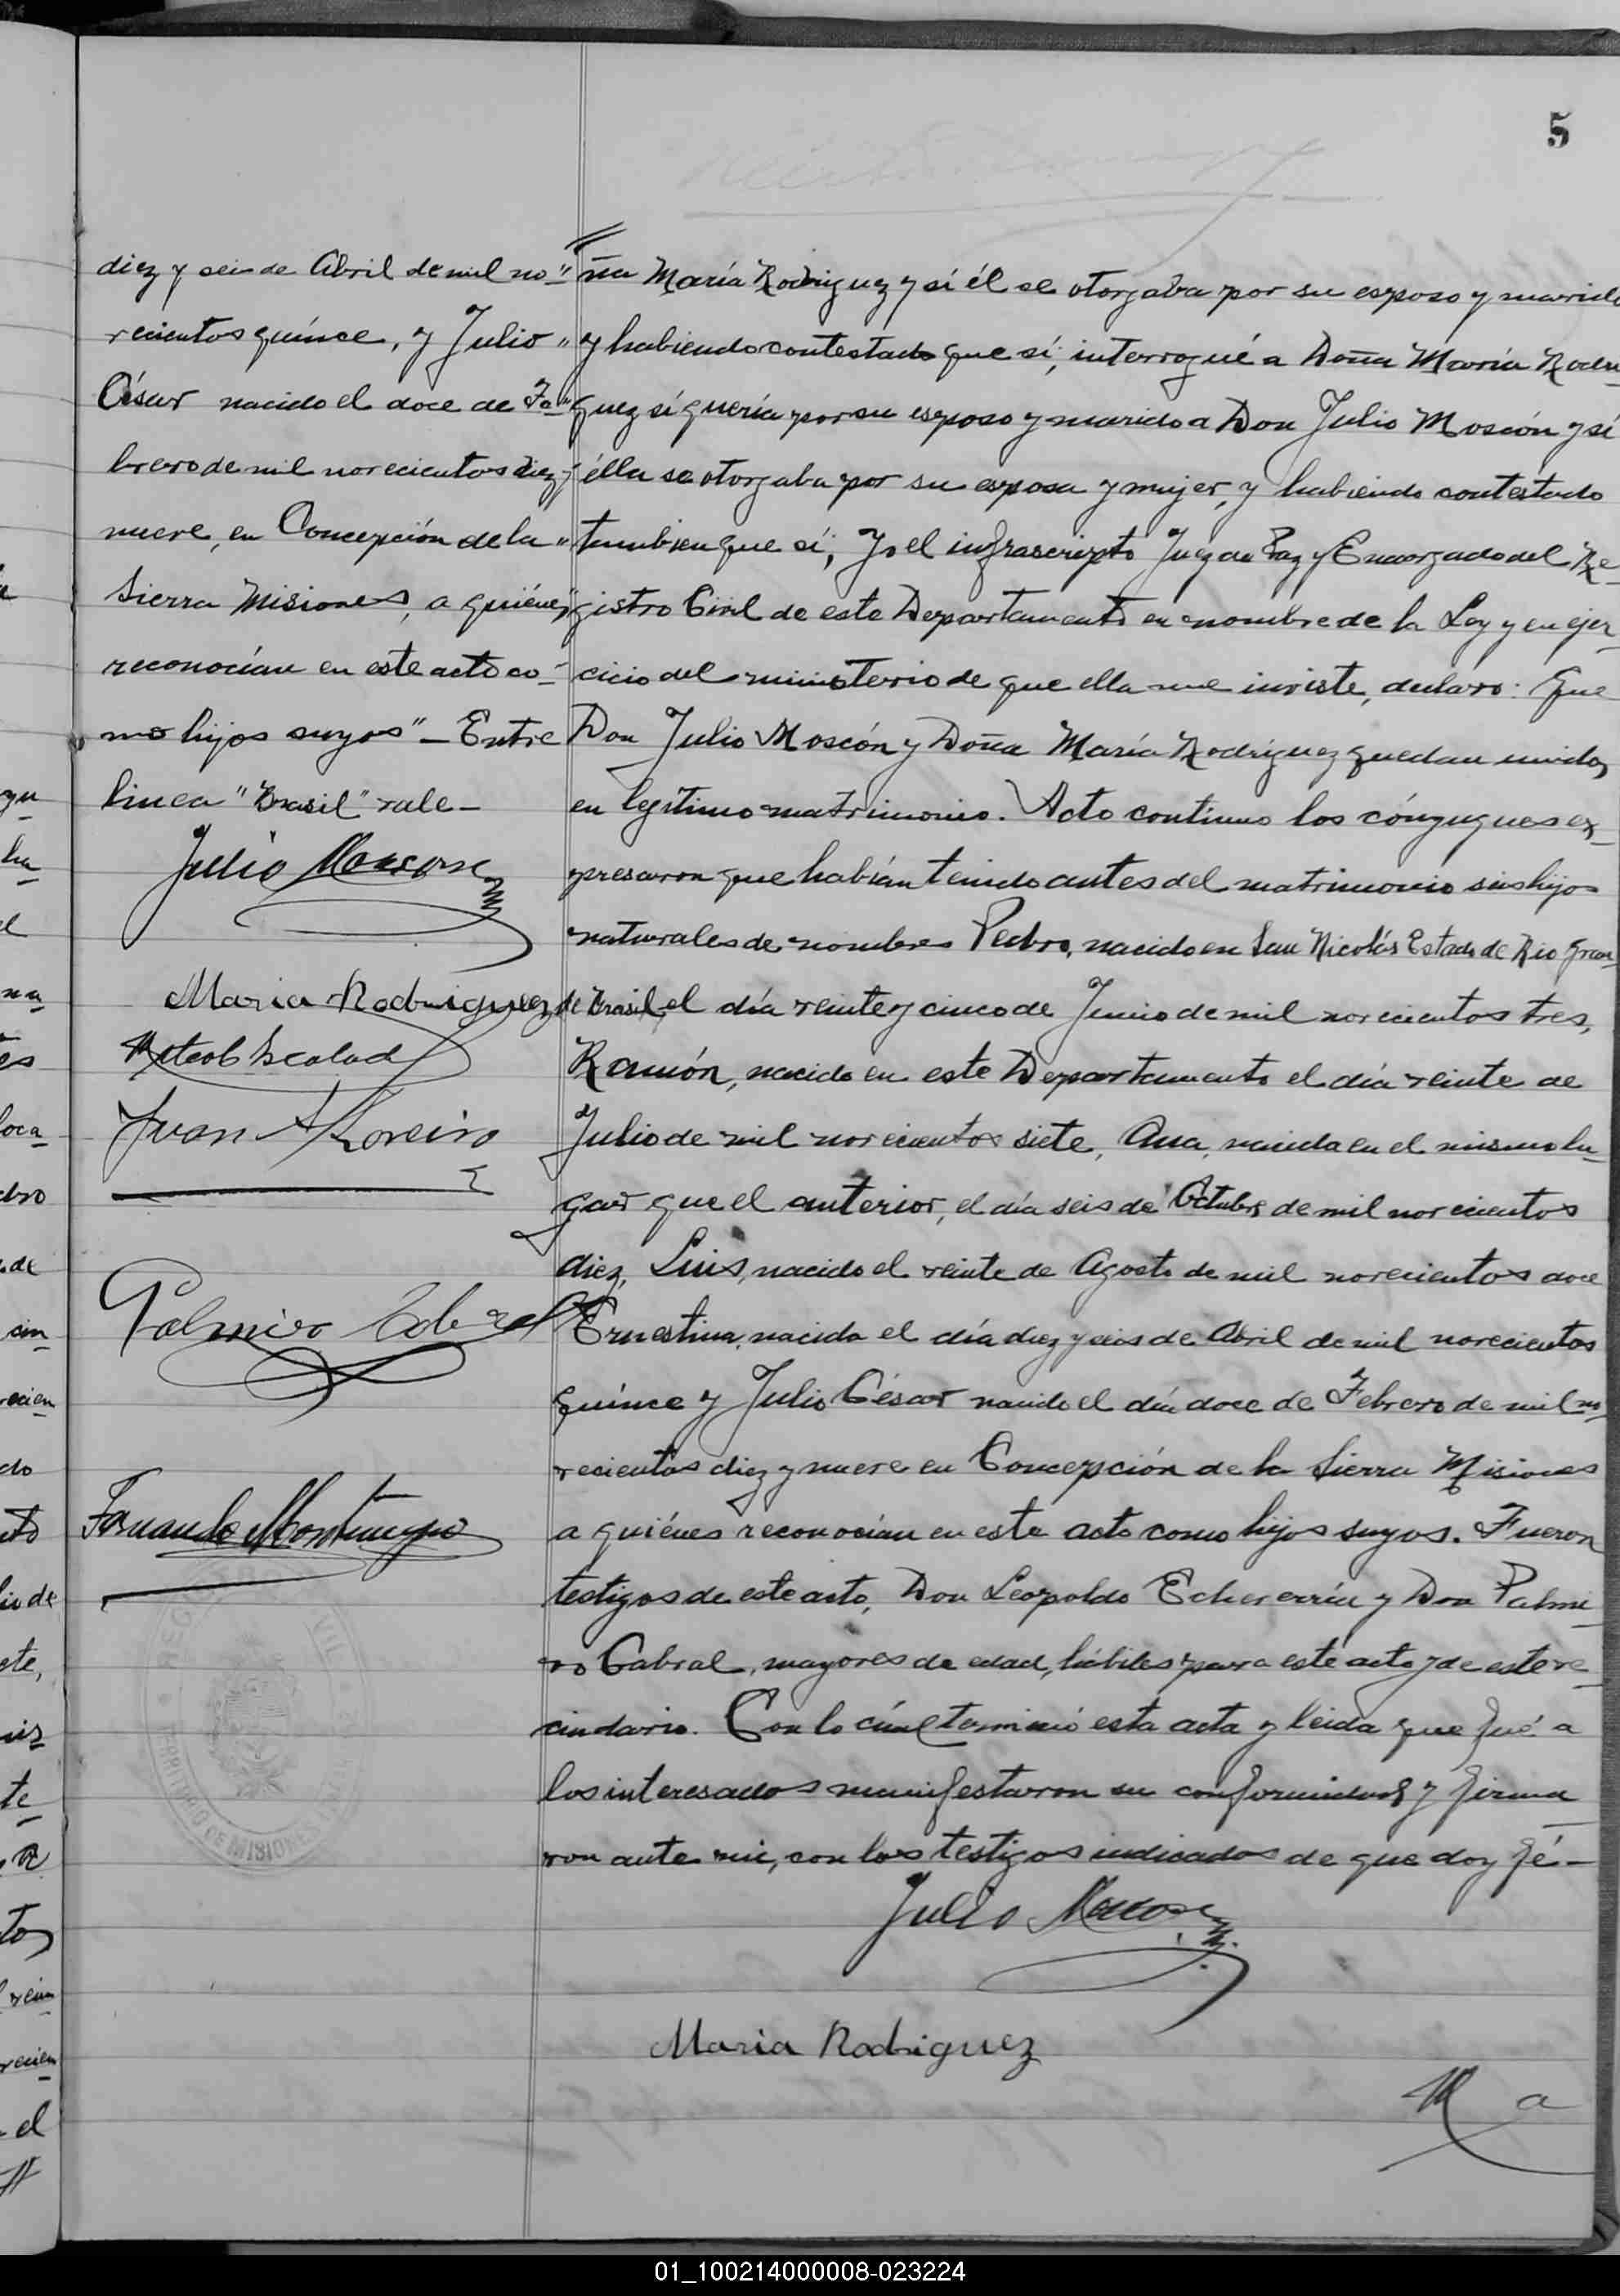 5
diez y seis de Abril de mil no-"
vecientos quínce, y Julio "
César nacido el doce de Fe-"
brero de mil novecientos diez y
nueve, en Concepción de la "
Sierra Misiones, a quiénes
reconocían en este acto co-
mo hijos suyos" - Entre
linea "Brasil" vale -
Julio Moscon
Maria Rodriguez
Juan A Loreiro
Palmiro Cabral
Fernando
ña María Rodriguez y sí él se otorgaba por su esposo y marido
y habiendo contestado que sí; interrogué a Doña María Rodri-
guez sí quería por su esposo y marido a Don Julio Moscón y sí
élla se otorgaba por su esposa y mujer, y habiendo contestado
tambien que sí; Yo el infrascripto Juez de Paz y Encargado del Re-
gistro Civil de este Departamento en nombre de la Ley y en ejer-
cicio del ministerio de que ella me inviste, declaro: Que
Don Julio Moscón y Doña María Rodríguez quedan unidos
en legítimo matrimonio. Acto continuo los cónyugues ex-
presaron que habían tenido antes del matrimonio seis hijos
naturales de nombres Pedro, nacido en San Nicolás Estado de Rio Gran-
de Brasil el día veinte y cinco de Junio de mil novecientos tres,
Ramón, nacido en este Departamento el día veinte de
Julio de mil novecientos siete, Ana, nacida en el mismo lu-
gar que el anterior, el día seis de Octubre de mil novecientos
diez, Luis, nacido el veinte de Agosto de mil novecientos doce
Ernestina, nacida el día diez y seis de Abril de mil novecientos
quínce y Julio César nacido el día doce de Febrero de mil no-
vecientos diez y nueve en Concepción de la Sierra Misiones
a quiénes reconocían en este acto como hijos suyos. Fueron
testigos de este acto, Don Leopoldo Echeverría y Don Palmi-
ro Cabral, mayores de edad, hábiles para este acto y de este ve-
cindario. Con lo cúal terminó esta acta y leida que fué a
los interesados manifestaron su conformidad y firma-
ron ante mi, con los testigos indicados de que doy fé -
Julio Moscon
Maria Rodriguez
M a
TERRITORIO DE MISIONES
01_100214000008-023224